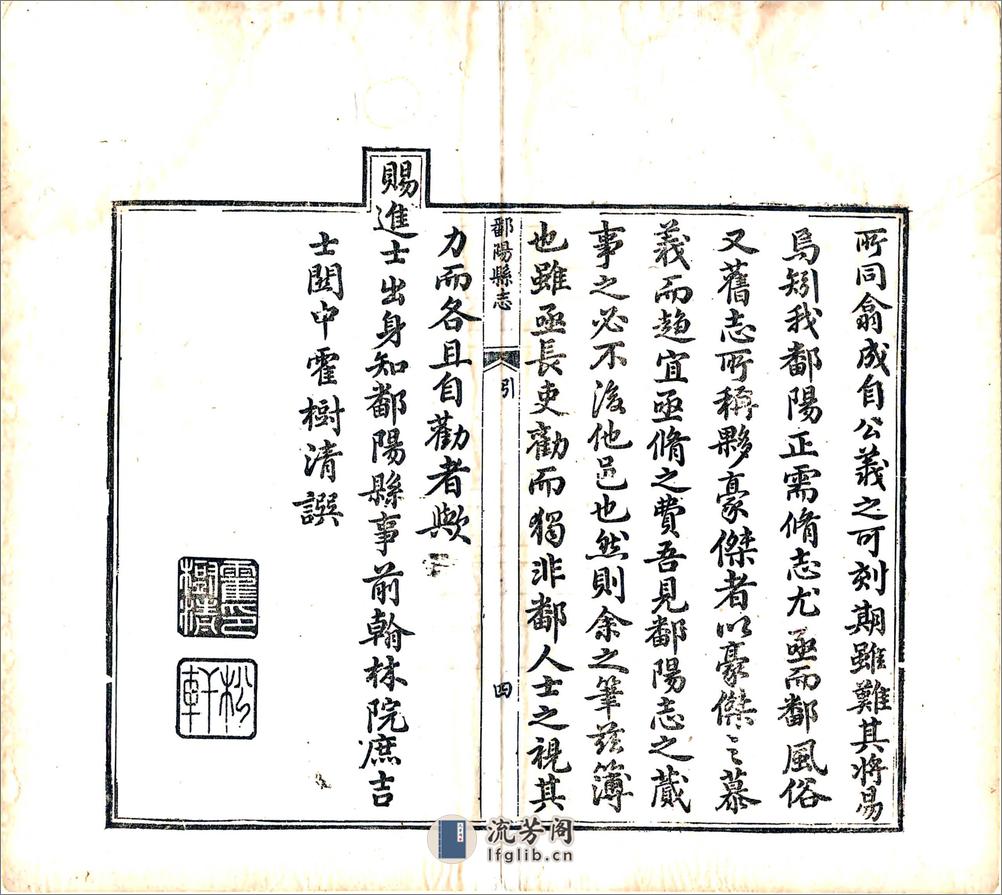 所同翕成自公義之可刻期雖難其將易
焉矧我鄱陽正需脩志尤亟而鄱風俗
又舊志所稱夥豪傑者以豪傑之慕
義而趨宜亟脩之費吾見鄱陽志之蕆
事之必不後他邑也然則余之筆茲簿
也雖亟長吏勸而獨非鄱人士之視其
鄱陽縣志
引
四
力而各且自勸者歟
賜進士出身知鄱陽縣事前翰林院庶吉
士關中霍樹清譔
霍樹清印
松軒
流芳阁
lfglib.cn